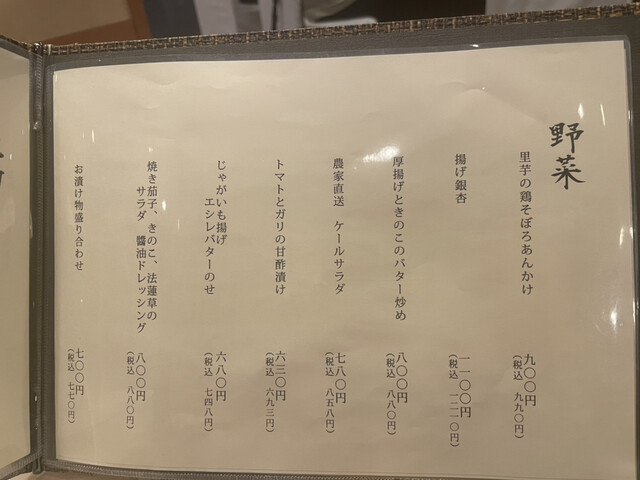 野菜
里芋の鶏そぼろあんかけ 九〇〇円
（税込 九九〇円）
揚げ銀杏 一一〇〇円
（税込 一二一〇円）
厚揚げときのこのバター炒め 八〇〇円
（税込 八八〇円）
農家直送 ケールサラダ 七八〇円
（税込 八五八円）
トマトとガリの甘酢漬け 六三〇円
（税込 六九三円）
じゃがいも揚げ
エシレバターのせ 六八〇円
（税込 七四八円）
焼き茄子、きのこ、法蓮草の
サラダ 醤油ドレッシング 八〇〇円
（税込 八八〇円）
お漬け物盛り合わせ 七〇〇円
（税込 七七〇円）